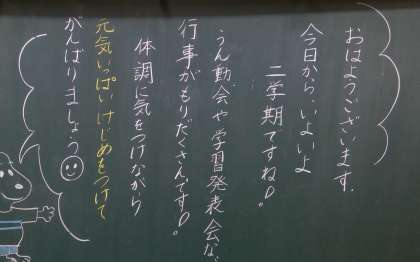 おはようございます。
今日から、いよいよ
二学期ですね♪。
うん動会や学習発表会など、
行事がもりだくさんです♪。
体調に気をつけながら
元気いっぱいけじめをつけて
がんばりましょう